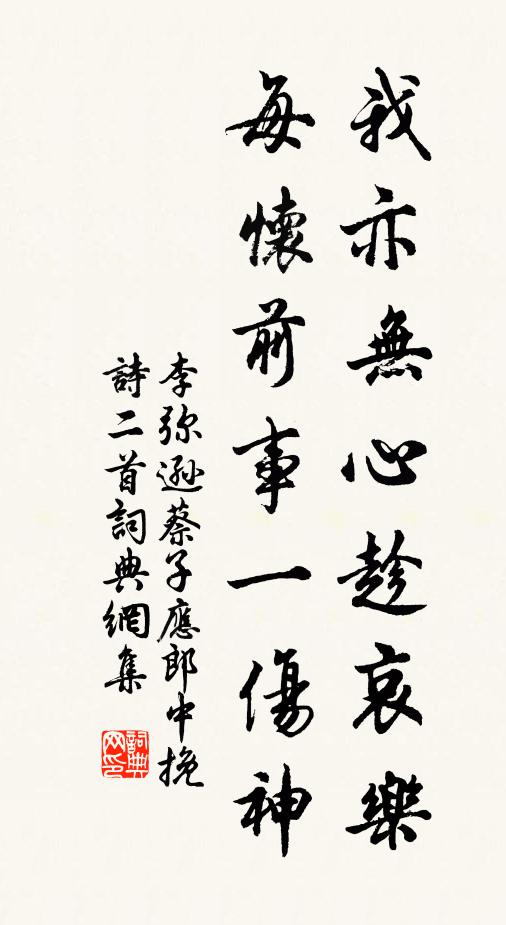 我亦無心趁哀樂
每懷前事一傷神
李弥遜蔡子應郎中挽
詩二首詞典網集
詞典
网印